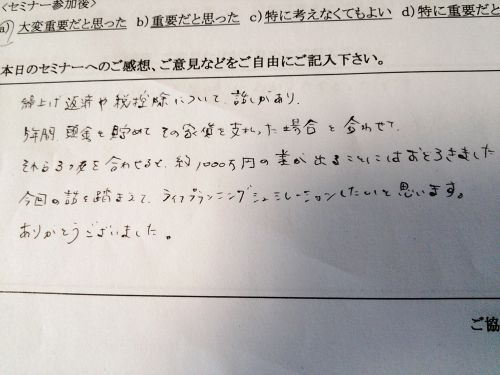 <セミナー参加後>
a) 大変重要だと思った b) 重要だと思った c) 特に考えなくてもよい d) 特に重要だと
本日のセミナーへのご感想、ご意見などをご自由にご記入下さい。
繰上げ返済や税控除について、話しがあり、
5年間、頭金を貯めてその家賃を支払った場合と合わせて
それら3つを合わせると、約1000万円の差が出ることにはおどろきました
今回の話を踏まえて、ライフプランニングシュミレーションしたいと思います。
ありがとうございました。
ご協